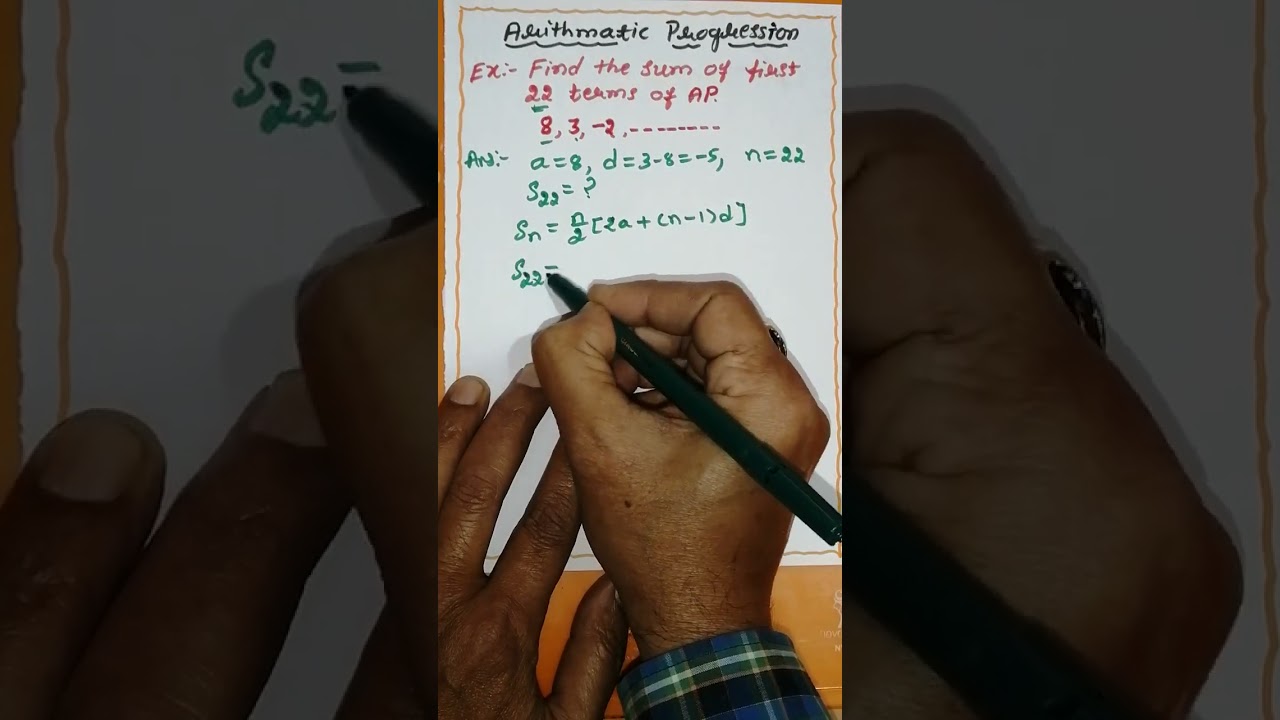 Arithmatic Progression
Ex:- Find the sum of first
22 terms of AP.
8, 3, -2, --------
Ans:- a=8, d=3-8=-5, n=22
S₂₂= ?
Sₙ = n/2 [2a+(n-1)d]
S₂₂=
S₂₂=